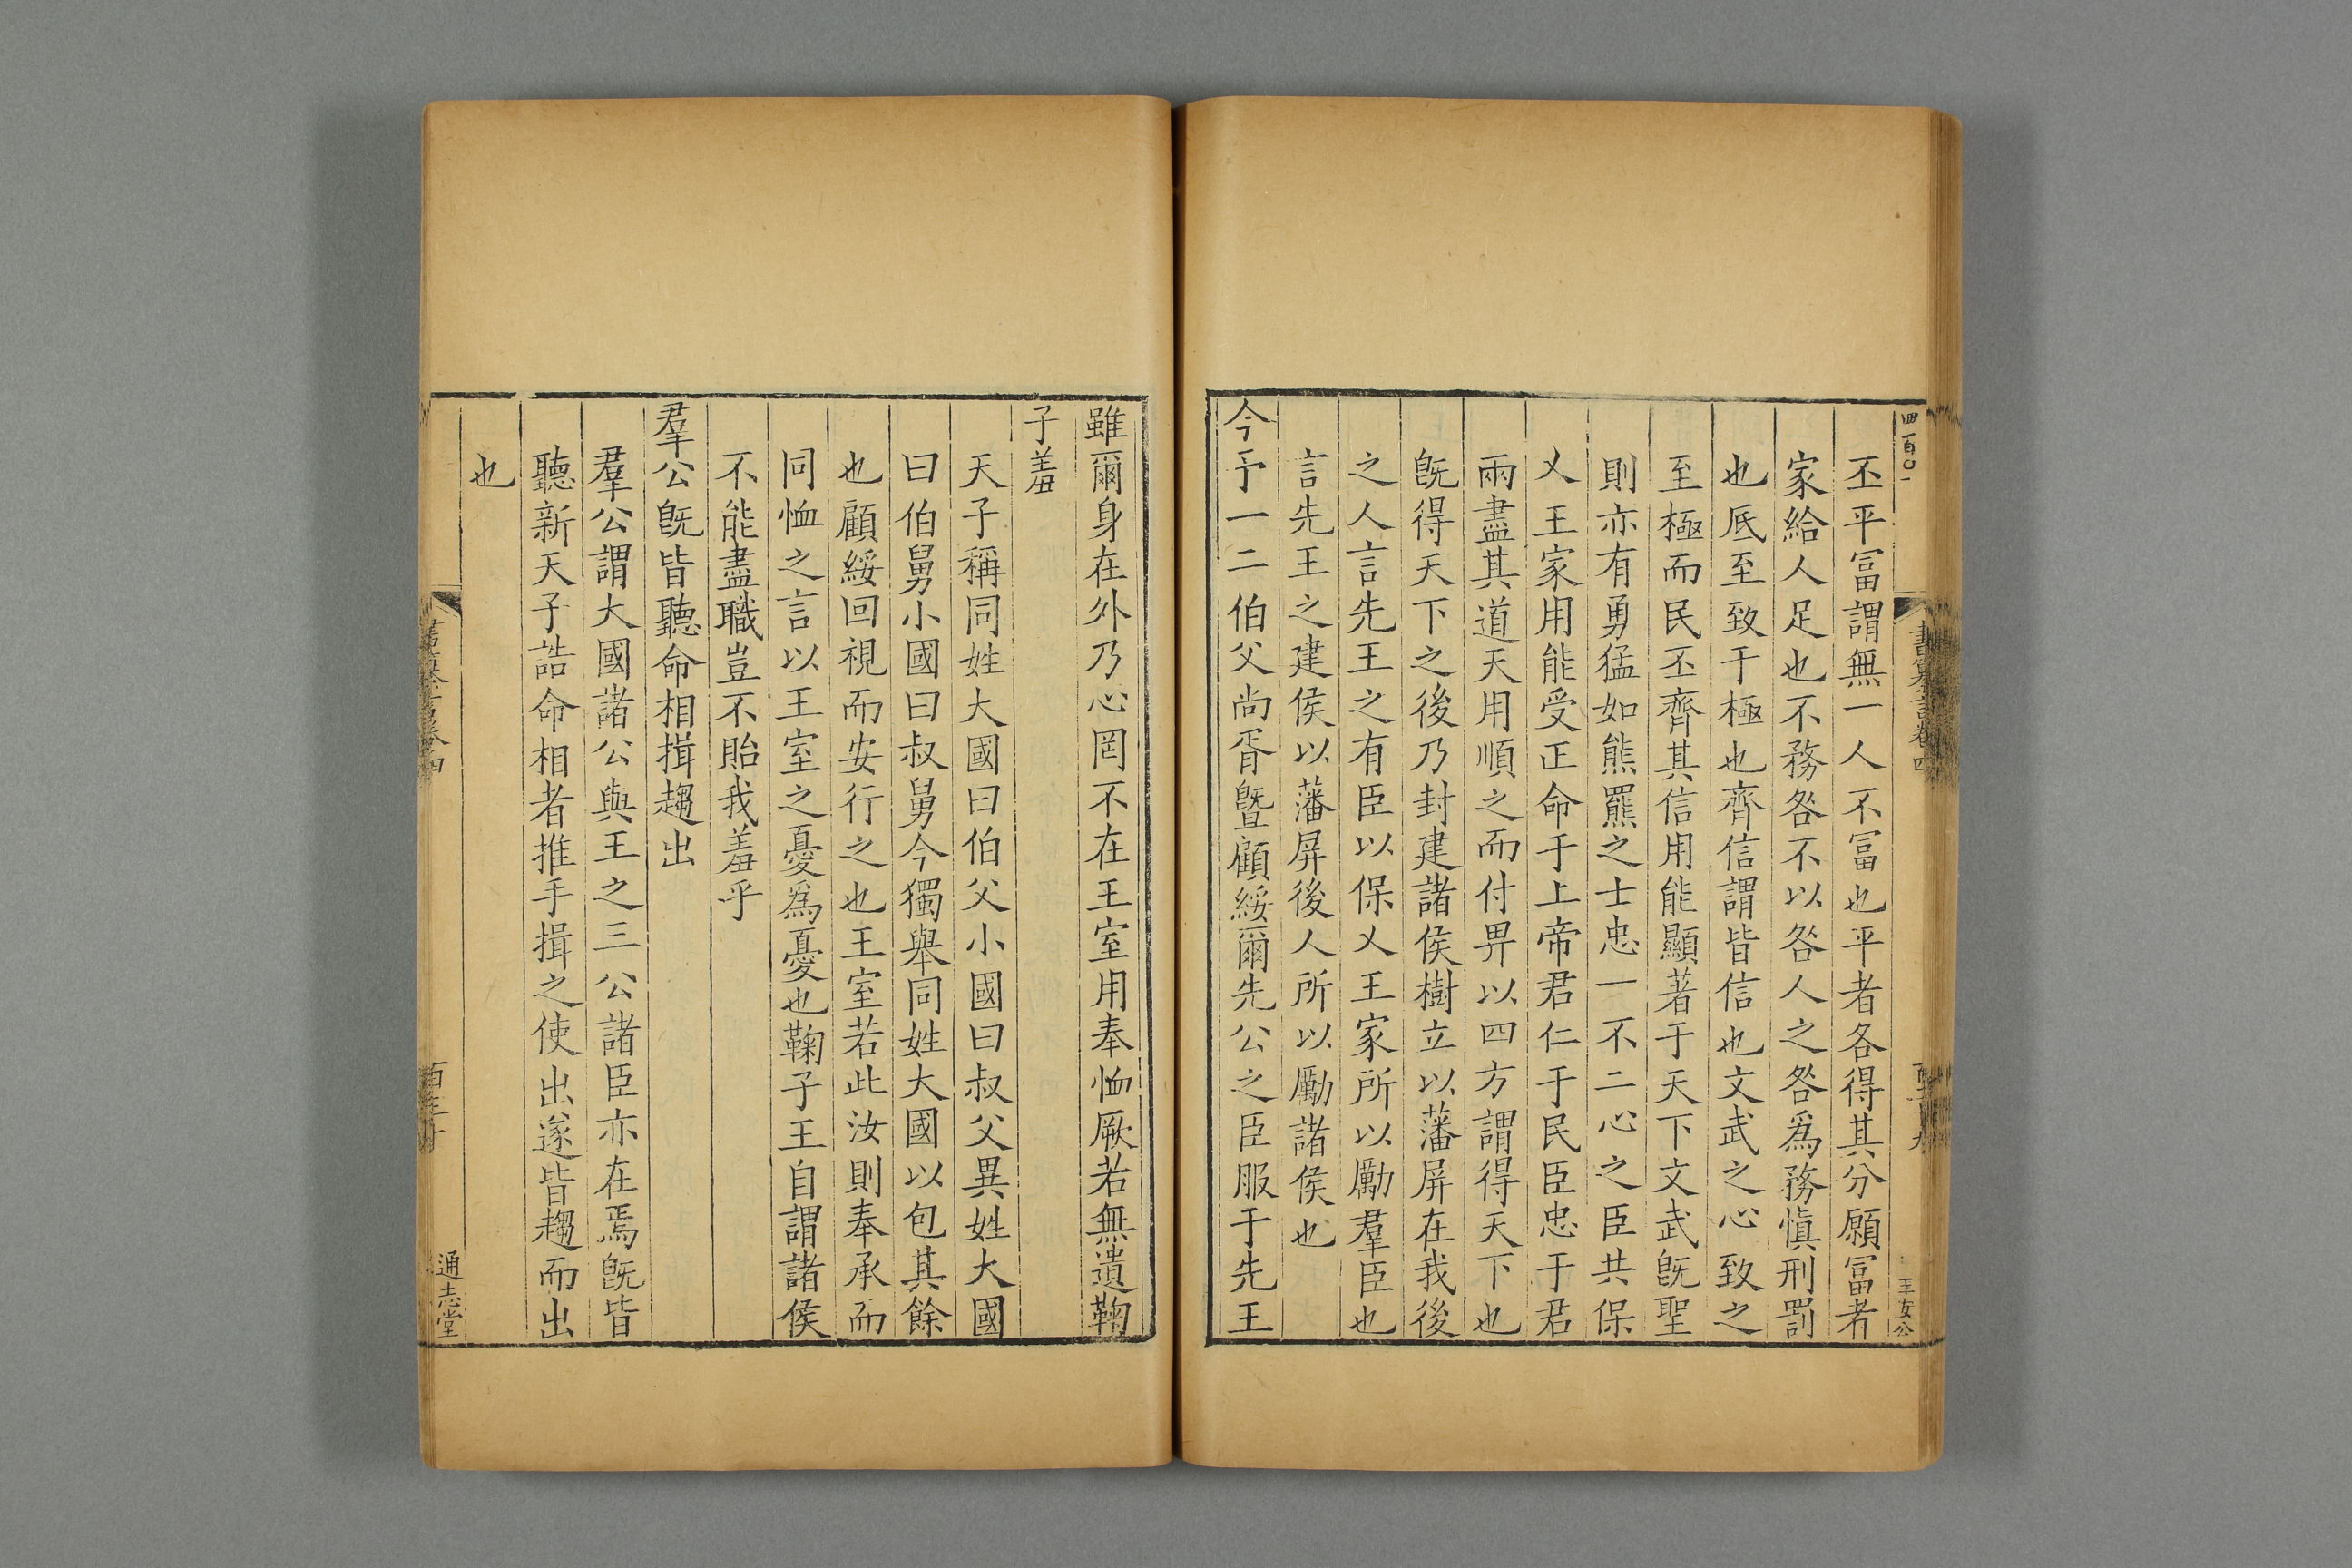 四百〇一
王女公
丕平冨謂無一人不冨也平者各得其分願冨者
家給人足也不務咎不以咎人之咎爲務慎刑罰
也厎至致于極也齊信謂皆信也文武之心致之
至極而民丕齊其信用能顯著于天下文武旣聖
則亦有勇猛如熊羆之士忠一不二心之臣共保
乂王家用能受正命于上帝君仁于民臣忠于君
兩盡其道天用順之而付畀以四方謂得天下也
旣得天下之後乃封建諸侯樹立以藩屏在我後
之人言先王之有臣以保乂王家所以勵羣臣也
言先王之建侯以藩屏後人所以勵諸侯也
今予一二伯父尚胥曁顧綏爾先公之臣服于先王
雖爾身在外乃心罔不在王室用奉恤厥若無遺鞠
子羞
天子稱同姓大國曰伯父小國曰叔父異姓大國
曰伯舅小國曰叔舅今獨舉同姓大國以包其餘
也顧綏回視而安行之也王室若此汝則奉承而
同恤之言以王室之憂爲憂也鞠子王自謂諸侯
不能盡職豈不貽我羞乎
羣公旣皆聽命相揖趨出
羣公謂大國諸公與王之三公諸臣亦在焉旣皆
聽新天子誥命相者推手揖之使出遂皆趨而出
也
通志堂